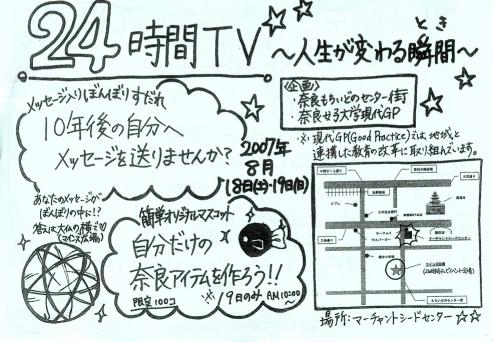 24時間TV ～人生が変わる瞬間～
とき
メッセージ入りぼんぼりすだれ
10年後の自分へ
メッセージを送りませんか？
2007年
8月
18日(土)・19日(日)
<企画>
・奈良もちいどのセンター街
・奈良女子大学現代GP
※現代GP(Good Practice)では、地域と
連携した教育の改革に取り組んでいます。
あなたのメッセージが
ぼんぼりの中に!?
答えは大仏の横で♡
簡単オリジナルマスコット
自分だけの
奈良アイテムを作ろう!!
限定100コ
※19日のみ AM10:00～
三条通り
マーチャントシードセンター
もちいどのセンター街
場所：マーチャントシードセンター☆☆